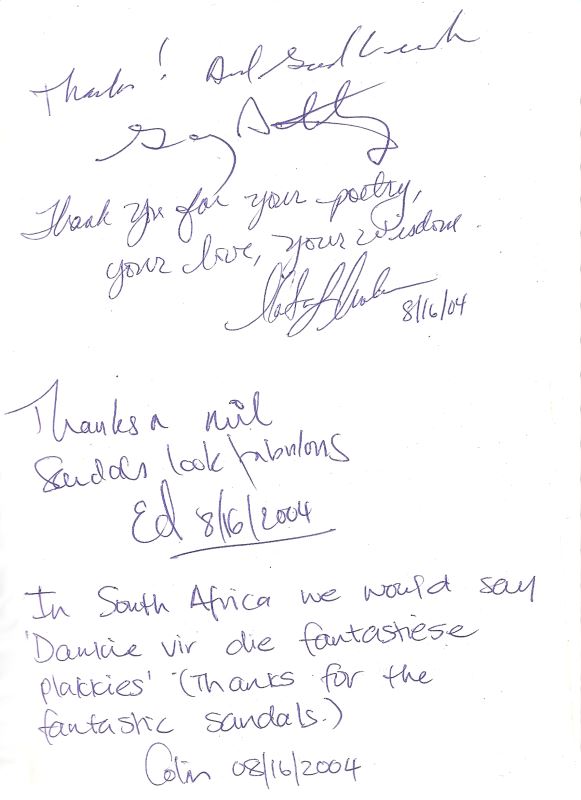 Thanks! And Good Luck
Thank you for your poetry,
your love, your wisdom.
8/16/04
Thanks a mil
Sandals look fabulous
Ed 8/16/2004
In South Africa we would say
'Dankie vir die fantastiese
plakkies' (Thanks for the
fantastic sandals.)
Colin 08/16/2004